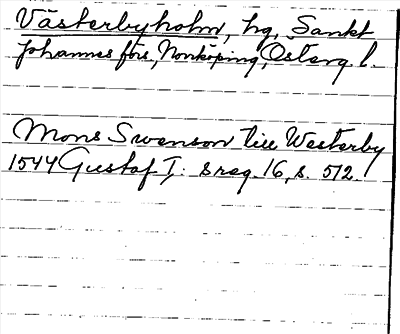 Västerbyholm, hg, Sankt
Johannes förs, Norrköping, Österg. l.
Mons Swenson till Westerby
1544 Gustaf I: s reg. 16, s. 512.